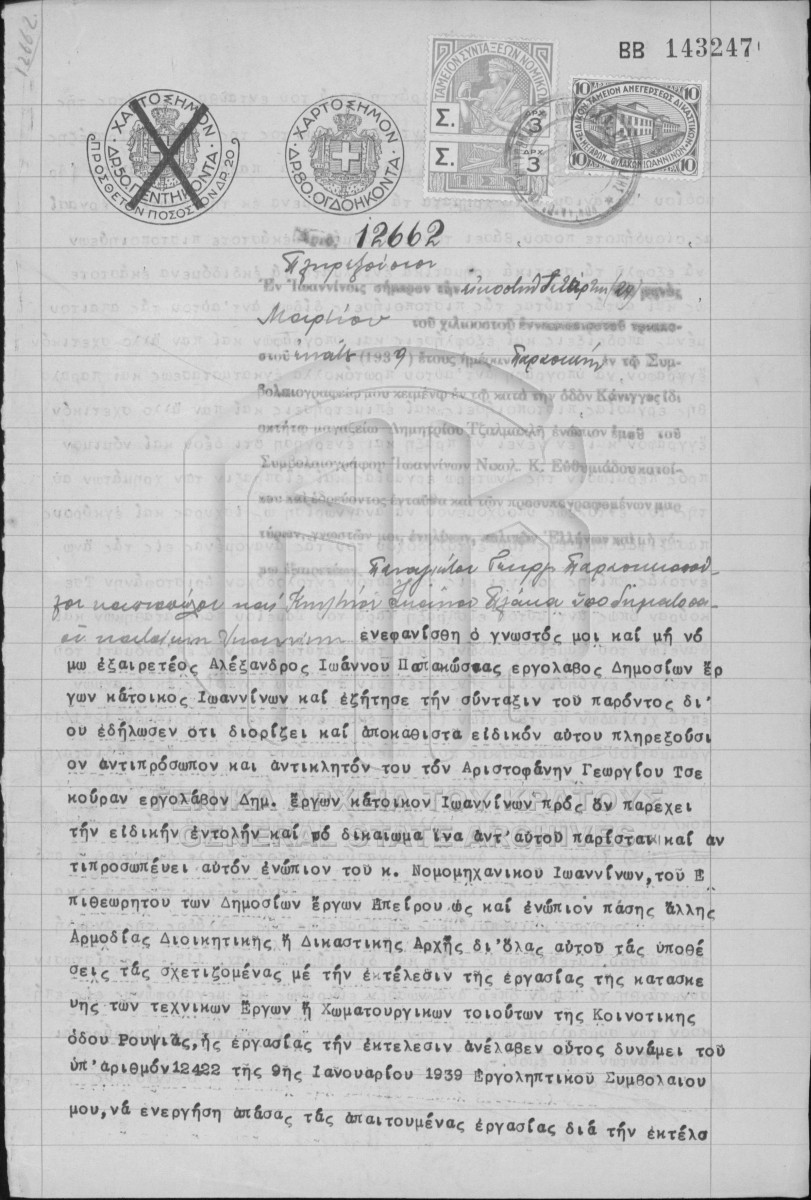 12662
ΒΒ 143247
ΧΑΡΤΟΣΗΜΟΝ
ΔΡ.50.ΠΕΝΤΗΚΟΝΤΑ
ΠΡΟΣΘΕΤΟΝ ΠΟΣΟΣΤΟΝ ΔΡ.20
ΧΑΡΤΟΣΗΜΟΝ
ΔΡ.80.ΟΓΔΟΗΚΟΝΤΑ
ΤΑΜΕΙΟΝ ΣΥΝΤΑΞΕΩΝ ΝΟΜΙΚΩΝ
Σ. ΔΡΧ 3
Σ. ΔΡΧ 3
10 10
ΕΙΔΙΚΟΝ ΤΑΜΕΙΟΝ ΑΝΕΓΕΡΣΕΩΣ ΔΙΚΑΣΤΙΚΟΥ
ΜΕΓΑΡΟΥ - ΦΥΛΑΚΩΝ ΙΩΑΝΝΙΝΩΝ
10 10
Αριθ. 12662
Πληρεξούσιον
Ἐν Ἰωαννίνοις σήμερον τὴν εἰκοστὴν τετάρτην /24/ μηνὸς
Μαρτίου τοῦ χιλιοστοῦ ἐννεακοσιοστοῦ τριακο-
στοῦ ἐνάτου (1939) ἔτους ἡμέραν Παρασκευὴν ἐν τῷ Συμ-
βολαιογραφείῳ μου κειμένῳ ἐν τῷ κατὰ τὴν ὁδὸν Κάνιγγος ἰδι
οκτήτῳ μαγαζείῳ Δημητρίου Τζαλμακλῆ ἐνώπιον ἐμοῦ τοῦ
Συμβολαιογράφου Ἰωαννίνων Νικολ. Κ. Εὐθυμιάδου κατοί-
κου καὶ ἑδρεύοντος ἐνταῦθα καὶ τῶν προσυπογραφομένων μαρ
τύρων, γνωστῶν μοι, ἐνηλίκων, πολιτῶν Ἑλλήνων καὶ μὴ νό-
μῳ ἐξαιρετέων Παναγιώτου Γεωργ. Παρασκευοπού-
λου καὶ
ενεφανίσθη ὁ γνωστός μοι καί μή νό
μω ἐξαιρετέος Αλέξανδρος Ιωάννου Παπακώστας εργολαβος Δημοσίων ἔρ
γων κάτοικος Ιωαννίνων καί εζήτησε τήν σύνταξιν του παρόντος δι'
ου εδήλωσεν οτι διορίζει καί αποκαθιστα είδικόν αύτου πληρεξούσι
ον άντιπρόσωπον και άντικλητόν του τόν Αριστοφάνην Γεωργίου Τσε
κούραν εργολάβον Δημ. ἔργων κάτοικον Ιωαννίνων πρός ὅν παρέχει
τήν είδικήν έντολήν καί τό δικαίωμα ἵνα άντ'αύτου παρίσται καί άν
τιπροσωπεύει αυτόν ενώπιον του κ. Νομομηχανικου Ιωαννίνων, τού Ε
πιθεωρητου των Δημοσίων ἔργων Ηπείρου ὡς καί ενώπιον πάσης ἄλλης
Αρμοδίας Διοικητικης ἤ Δικαστικης Αρχῆς δι'ὅλας αύτού τάς ὑποθέ
σεις τάς σχετιζομένας μέ τήν έκτέλεσιν τῆς έργασίας της κατασκε
υης των τεχνικων Εργων ἤ Χωματουργικων τοιούτων της Κοινοτικης
όδου Ρουψιάς, ἧς έργασίας τήν έκτελεσιν άνέλαβεν οὗτος δυνάμει τού
ὑπ'άριθμόν 12422 της 9ης Ιανουαρίου 1939 Εργοληπτικού Συμβολαιου
μου, νά ενεργήση άπάσας τάς άπαιτουμένας έργασίας διά τήν έκτέλσ
ΓΕΝΙΚΑ ΑΡΧΕΙΑ ΤΟΥ ΚΡΑΤΟΥΣ
GENERAL STATE ARCHIVES